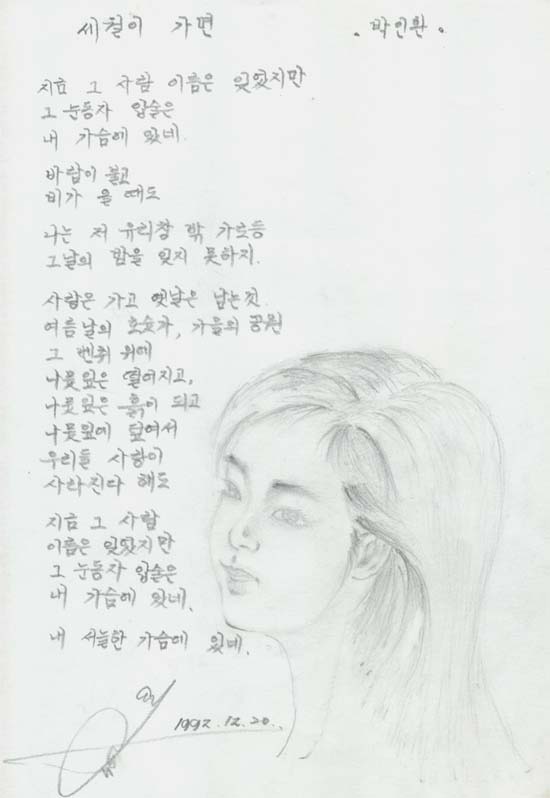 세월이 가면 . 박인환 .
지금 그 사람 이름은 잊었지만
그 눈동자 입술은
내 가슴에 있네.
바람이 불고
비가 올 때도
나는 저 유리창 밖 가로등
그늘의 밤을 잊지 못하지.
사랑은 가고 옛날은 남는것
여름날의 호숫가, 가을의 공원
그 벤취 위에
나뭇잎은 떨어지고,
나뭇잎은 흙이 되고
나뭇잎에 덮여서
우리들 사랑이
사라진다 해도
지금 그 사람
이름은 잊었지만
그 눈동자 입술은
내 가슴에 있네,
내 서늘한 가슴에 있네.
1992.12.20.